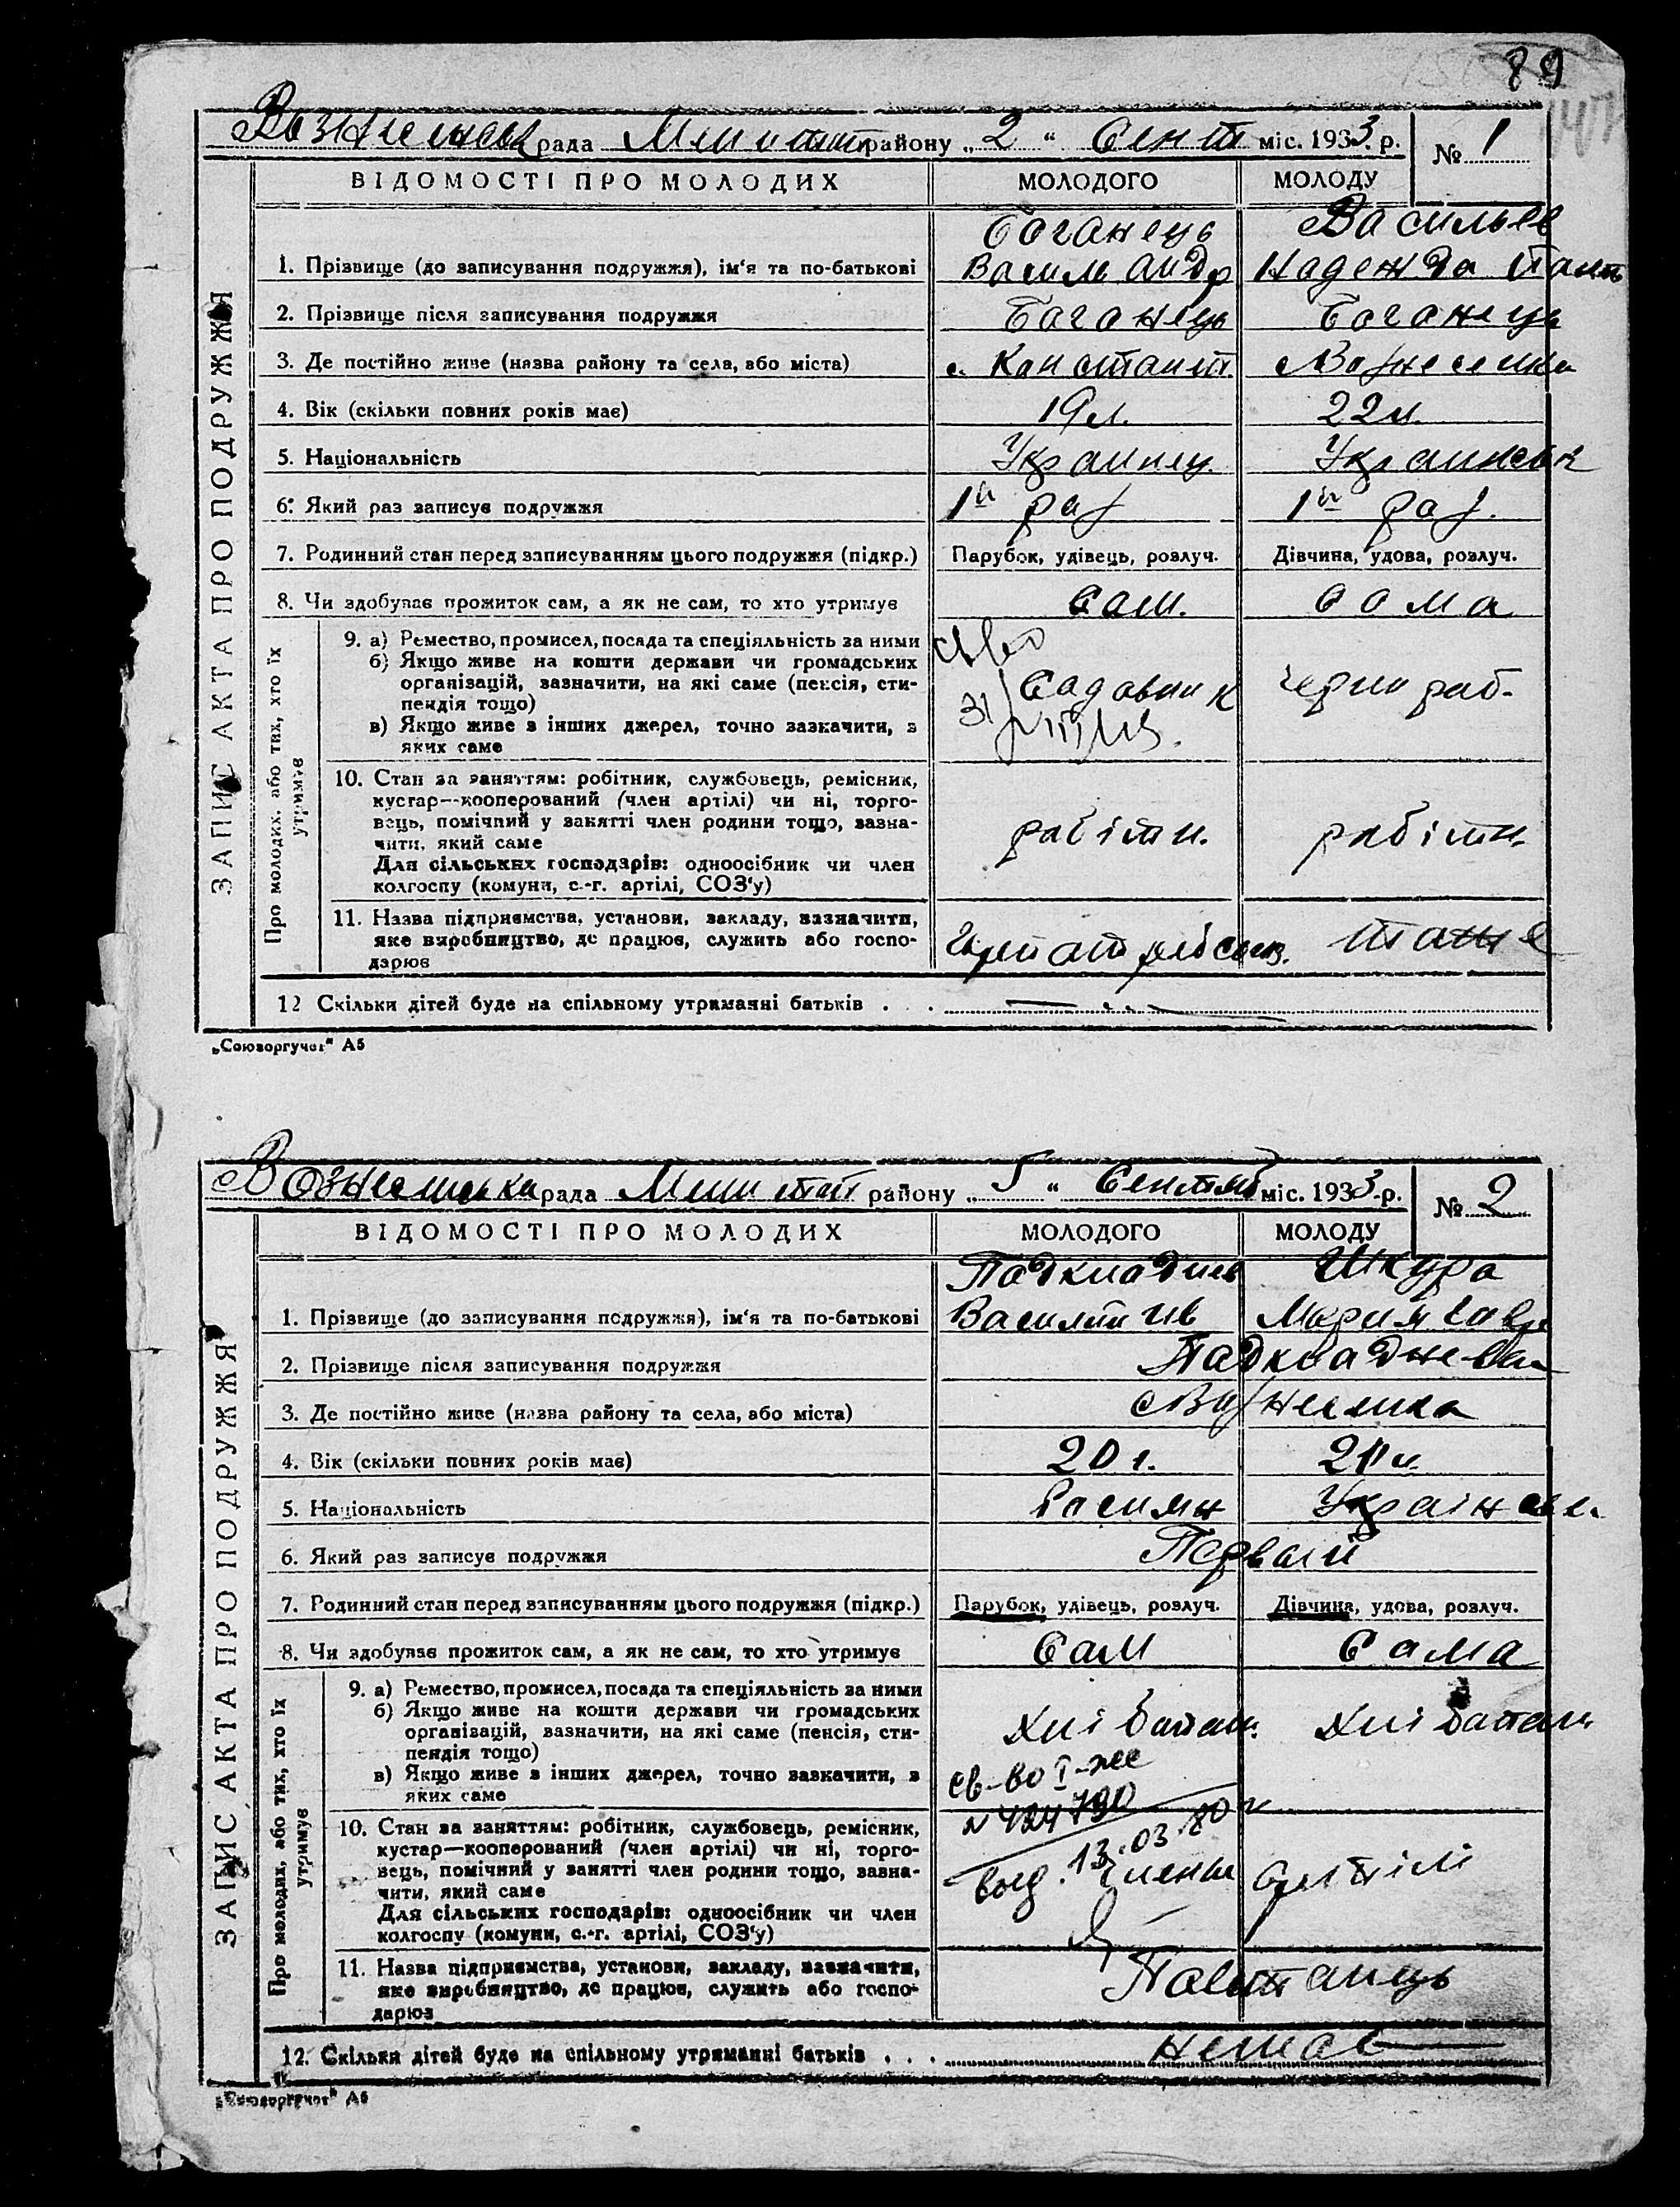 89
Вознесенськ рада Мелітоп району „2“ Сент міс. 1933 р. № 1
ВІДОМОСТІ ПРО МОЛОДИХ МОЛОДОГО МОЛОДУ
ЗАПИС АКТА ПРО ПОДРУЖЖЯ
Боганець Васильев
1. Прізвище (до записування подружжя), ім‘я та по-батькові Васил Андр Надежда Пант
2. Прізвище після записування подружжя Боганець Боганець
3. Де постійно живе (назва району та села, або міста) с. Констант. с Вознесенка
4. Вік (скільки повних років має) 19 л. 22 л.
5. Національність Украинец. Украинськ
6. Який раз записує подружжя 1й раз 1й раз.
7. Родинний стан перед записуванням цього подружжя (підкр.) Парубок, удівець, розлуч. Дівчина, удова, розлуч.
8. Чи здобував прожиток сам, а як не сам, то хто утримує Сам. Сама
Про молодих, або тих, хто їх утримує
9. а) Ремество, промисел, посада та спеціяльність за ними
б) Якщо живе на кошти держави чи громадських
організацій, зазначити, на які саме (пенсія, сти- Садовник черн раб.
пендія тощо)
в) Якщо живе з інших джерел, точно зазначити, з
яких саме
10. Стан за заняттям: робітник, службовець, ремісник,
кустар—кооперований (член артілі) чи ні, торго-
вець, помічний у занятті член родини тощо, зазна- робітн. робітн.
чити, який саме
Для сільських господарів: одноосібник чи член
колгоспу (комуни, с.-г. артілі, СОЗ‘у)
11. Назва підприємства, установи, закладу, зазначити,
яке виробництво, де працює, служить або госпо- тоже
дарює
12 Скільки дітей буде на спільному утриманні батьків . . .
„Союзоргучет“ А5
Вознесенська рада Мелітоп району „5“ Сентяб міс. 1933 р. № 2
ВІДОМОСТІ ПРО МОЛОДИХ МОЛОДОГО МОЛОДУ
ЗАПИС АКТА ПРО ПОДРУЖЖЯ
Падкладнев Шкура
1. Прізвище (до записування подружжя), ім‘я та по-батькові Василий Ив Мария Савр
2. Прізвище після записування подружжя Падкладневы
3. Де постійно живе (назва району та села, або міста) с Вознесенка
4. Вік (скільки повних років має) 20 г. 21 л.
5. Національність Росиян Українськ.
6. Який раз записує подружжя Первый
7. Родинний стан перед записуванням цього подружжя (підкр.) Парубок, удівець, розлуч. Дівчина, удова, розлуч.
8. Чи здобував прожиток сам, а як не сам, то хто утримує Сам Сама
Про молодих, або тих, хто їх утримує
9. а) Ремество, промисел, посада та спеціяльність за ними
б) Якщо живе на кошти держави чи громадських
організацій, зазначити, на які саме (пенсія, сти- Хлібопаш. Хлібопаш
пендія тощо)
в) Якщо живе з інших джерел, точно зазначити, з св-во I-ЖС
яких саме № 424790
10. Стан за заняттям: робітник, службовець, ремісник, выд. 13.03.80 г
кустар—кооперований (член артілі) чи ні, торго-
вець, помічний у занятті член родини тощо, зазна- члены артілі
чити, який саме
Для сільських господарів: одноосібник чи член
колгоспу (комуни, с.-г. артілі, СОЗ‘у)
11. Назва підприємства, установи, закладу, зазначити,
яке виробництво, де працює, служить або госпо-
дарює
12. Скільки дітей буде на спільному утриманні батьків . . . немає
„Союзоргучет“ А5